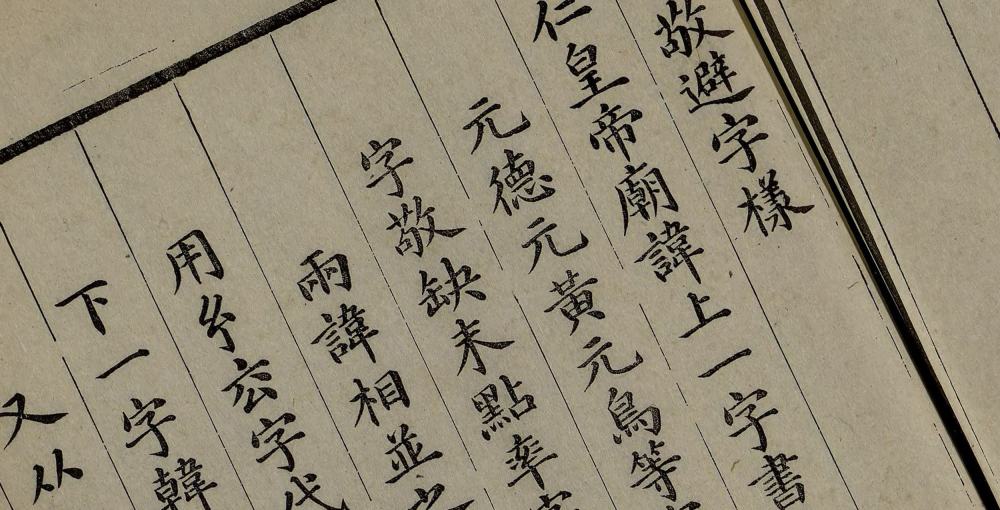 敬避字樣
仁皇帝廟諱上一字書
元德元黃元鳥等
字敬缺末點率
兩諱相並
用幺玄字代
下一字韓
又从